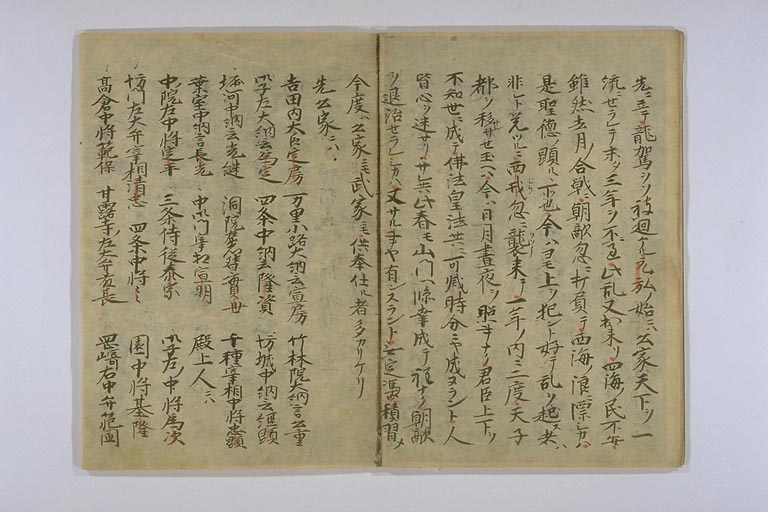 先ニ立テ龍駕ヲソ被廻ケル元弘ノ始ニハ公家天下ヲ一
流ニセラレテ未ヲ三年ヲ不過此乱又出来リ四海ノ民不安
雖然去月ノ合戦ニ朝敵忽ニ打負テ西海ノ浪ニ漂シカハ
是聖徳ノ顕ルヽ所也今ハヨモ上ヲ犯シ好テ乱ヲ起ス者
非シト覚ツルニ西戎忽ニ襲来テ一年ノ内ニ二度天子
都ヲ移サセ玉ヘハ今ハ日月昼夜ヲ照コトナク君臣上下ヲ
不知世ニ成テ佛法皇法共ニ可滅時分ニヤ成ヌラント人
皆心ヲ迷ヘリサレ共此春モ山門ヘ臨幸成テ程ナク朝敵
ヲ退治セラレシカハ又サル事ヤ有ンスラント定憑積習メ
今度ハ公家ニモ武家ニモ供奉仕ル者多カリケリ
先公家ニハ
吉田内大臣定房 万里小路大納言宣房 竹林院大納言公重
御子左大納言為定 四条中納言隆資 坊城中納言経顕
堀河中納言光継 洞院左衛門督実世 千種宰相中将忠顕
葉室中納言長光 中御門宰相宣明 殿上人ニハ
中院左中将定平 三条侍従泰家 御子左ノ中将為次
坊門左大弁宰相清忠 四条中将 園中将基隆
高倉中将範保 甘露寺左大弁藤長 岡崎右中弁範国